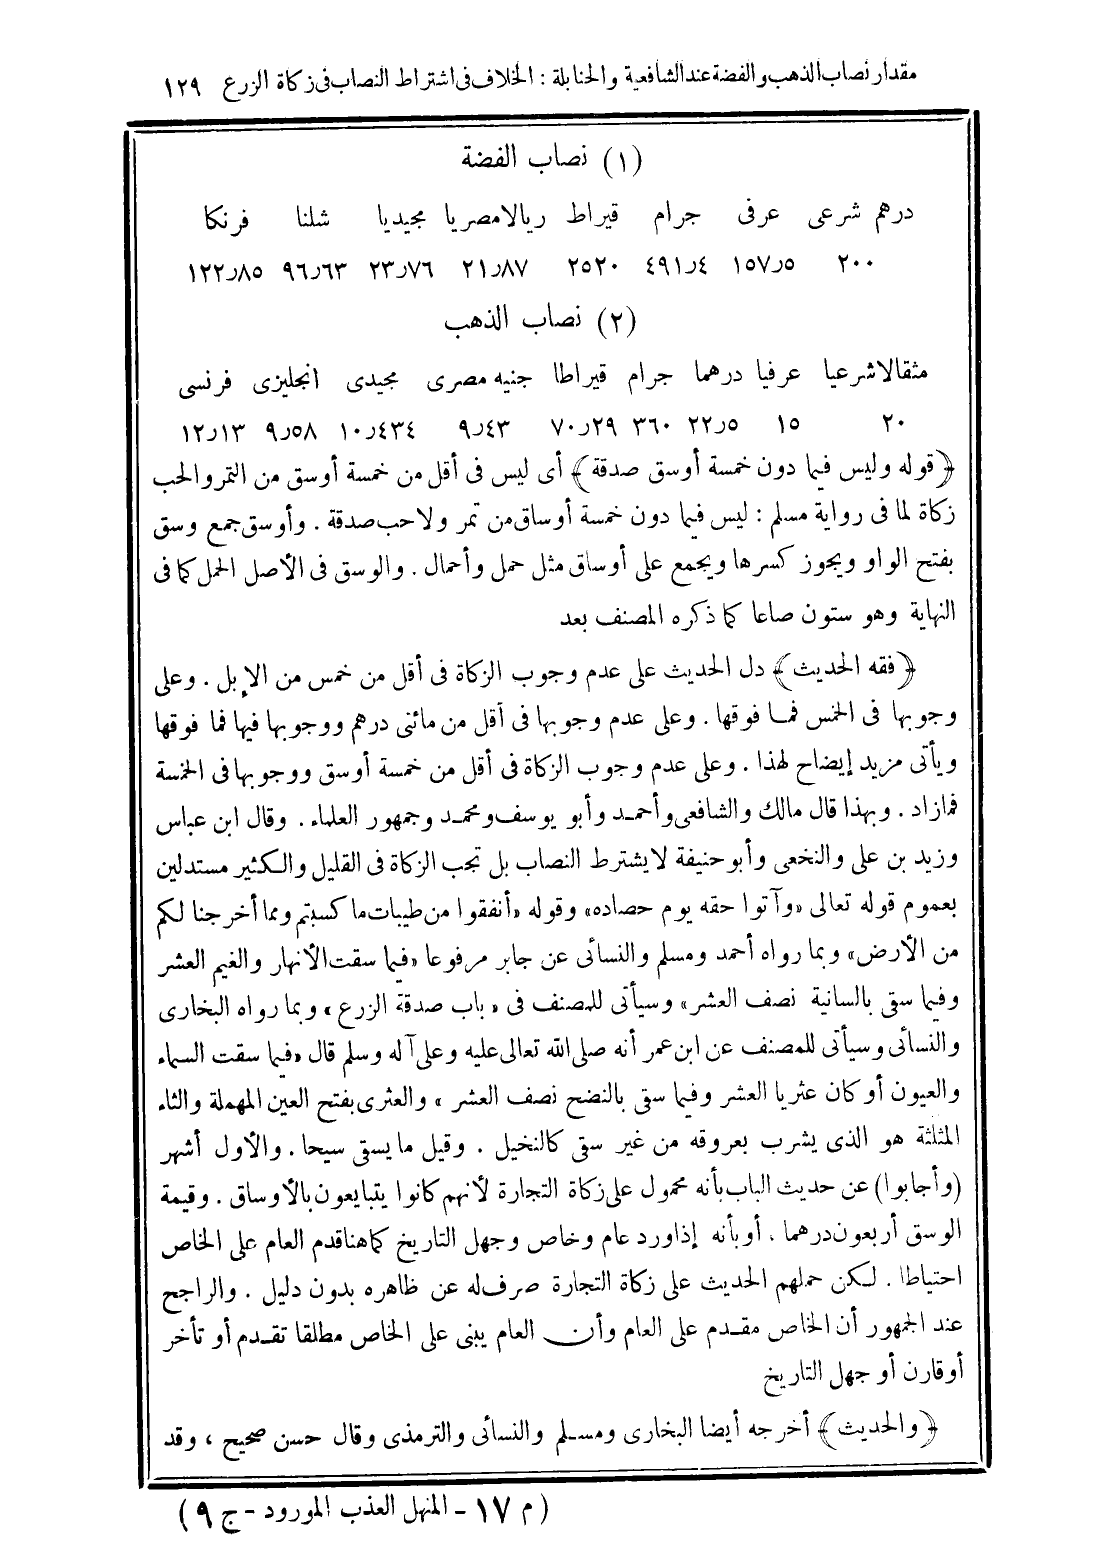 مقدار نصاب الذهب والفضة عند الشافعية والحنابلة : الخلاف فى اشتراط النصاب فى زكاة الزرع ١٢٩
(١) نصاب الفضة
درهم شرعى عرفى جرام قيراط ريالا مصريا مجيديا شلنا فرنكا
٢٠٠ ١٥٧٫٥ ٤٩١٫٤ ٢٥٢٠ ٢١٫٨٧ ٢٣٫٧٦ ٩٦٫٦٣ ١٢٢٫٨٥
(٢) نصاب الذهب
مثقالا شرعيا عرفيا درهما جرام قيراطا جنيه مصرى مجيدى انجليزى فرنسى
٢٠ ١٥ ٢٢٫٥ ٣٦٠ ٧٠٫٢٩ ٩٫٤٣ ١٠٫٤٣٤ ٩٫٥٨ ١٢٫١٣
﴿قوله وليس فيما دون خمسة أوسق صدقة﴾ أى ليس فى أقل من خمسة أوسق من التمر والحب
زكاة لما فى رواية مسلم : ليس فيما دون خمسة أوساق من تمر ولا حب صدقة . وأوسق جمع وسق
بفتح الواو ويجوز كسرها ويجمع على أوساق مثل حمل وأحمال . والوسق فى الأصل الحمل كما فى
النهاية وهو ستون صاعا كما ذكره المصنف بعد
﴿فقه الحديث﴾ دل الحديث على عدم وجوب الزكاة فى أقل من خمس من الإبل . وعلى
وجوبها فى الخمس فمـا فوقها . وعلى عدم وجوبها فى أقل من مائتى درهم ووجوبها فيها فما فوقها
ويأتى مزيد إيضاح لهذا . وعلى عدم وجوب الزكاة فى أقل من خمسة أوسق ووجوبها فى الخمسة
فمازاد . وبهذا قال مالك والشافعى وأحمـد وأبو يوسف ومحمـد وجمهور العلماء . وقال ابن عباس
وزيد بن على والنخعى وأبو حنيفة لا يشترط النصاب بل تجب الزكاة فى القليل والـكثير مستدلين
بعموم قوله تعالى «وآتوا حقه يوم حصاده» وقوله «أنفقوا من طيبات ما كسبتم ومما أخرجنا لكم
من الأرض» وبما رواه أحمد ومسلم والنسائى عن جابر مرفوعا «فيما سقت الأنهار والغيم العشر
وفيما سقى بالسانية نصف العشر» وسيأتى للمصنف فى «باب صدقة الزرع» وبما رواه البخارى
والنسائى وسيأتى للمصنف عن ابن عمر أنه صلى الله تعالى عليه وعلى آله وسلم قال «فيما سقت السماء
والعيون أو كان عثريا العشر وفيما سقى بالنضح نصف العشر» والعثرى بفتح العين المهملة والثاء
المثلثة هو الذى يشرب بعروقه من غير سقى كالنخيل . وقيل ما يسقى سيحا . والأول أشهر
(وأجابوا) عن حديث الباب بأنه محمول على زكاة التجارة لأنهم كانوا يتبايعون بالأوساق . وقيمة
الوسق أربعون درهما . أو بأنه إذا ورد عام وخاص وجهل التاريخ كما هنا قدم العام على الخاص
احتياطا . لـكن حملهم الحديث على زكاة التجارة صرف له عن ظاهره بدون دليل . والراجح
عند الجمهور أن الخاص مقـدم على العام وأن العام يبنى على الخاص مطلقا تقـدم أو تأخر
أو قارن أو جهل التاريخ
﴿والحديث﴾ أخرجه أيضا البخارى ومسـلم والنسائى والترمذى وقال حسن صحيح ، وقد
(م ١٧ - المنهل العذب المورود - ج ٩)